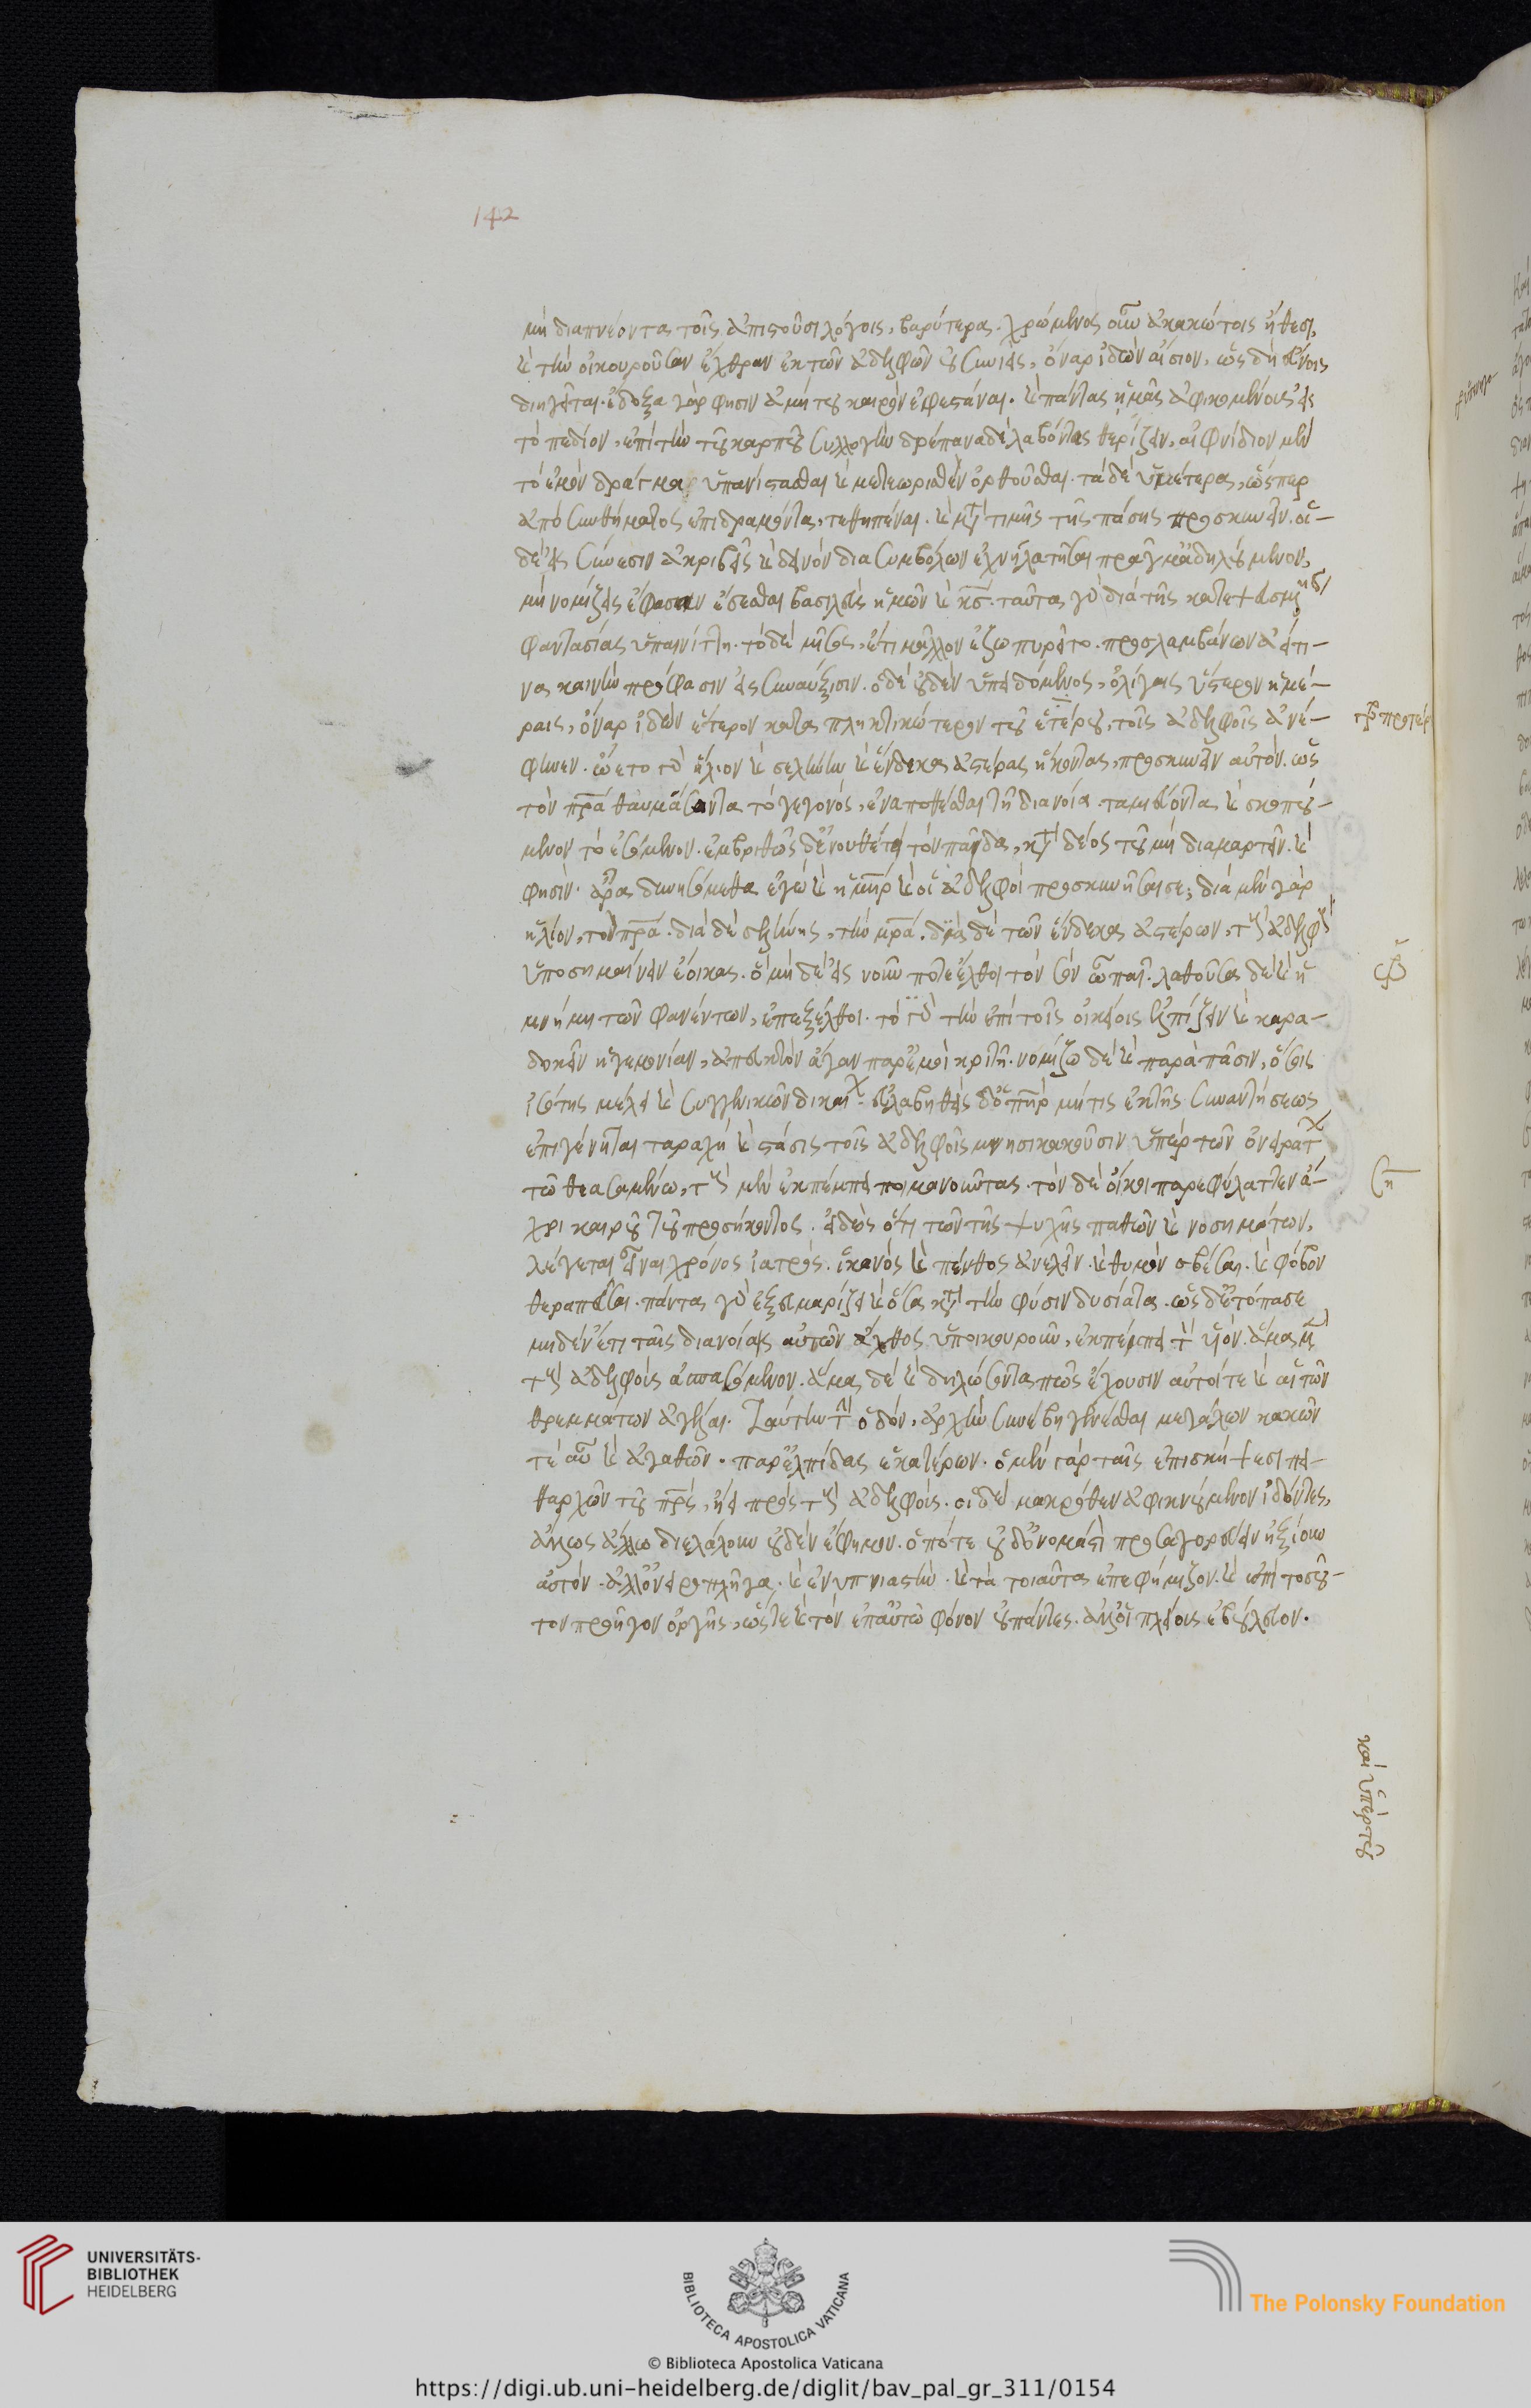 142
μὴ διαπνέοντα τοῖς ἀπιστοῦσι λόγοις, βαρύτερα. χρώμενος οὖν ἀκακώτοις ἤθεσι,
καὶ τὴν οἰκουροῦσαν ἔχθραν ἐκ τῶν ἀδελφῶν οὐ συνιεὶς, ὄναρ ἰδὼν αἴσιον, ὡς δὴ εὔνοις
διηγεῖται. ἔδοξα γὰρ φησὶν ἀμήτου καιρὸν ἐφεστάναι. καὶ πάντας ἡμᾶς ἀφικομένους εἰς
τὸ πεδίον, ἐπὶ τὴν τοῦ καρποῦ συλλογὴν δρέπανα δὲ λαβόντας θερίζειν, αἰφνίδιον μὲν
τὸ ἐμὸν δράγμα ὑπανίστασθαι καὶ μετεωρισθὲν ὀρθοῦσθαι. τὰ δὲ ὑμέτερα, ὥσπερ
ἀπὸ συνθήματος ἐπιδραμόντα, τεθηπέναι. καὶ μετὰ τιμῆς τῆς πάσης προσκυνεῖν. οἱ
δὲ εἰς σύνεσιν ἀκριβεῖς καὶ δεινὸν διὰ συμβόλων ἰχνηλατῆσαι πρᾶγμα δηλούμενον,
μὴ νομίζεις ἔφασαν ἔσεσθαι βασιλεὺς ἡμῶν καὶ κς. ταῦτα γὰρ διὰ τῆς κατεψευσμένης
φαντασίας ὑπαινίττη. τὸ δὲ μῖσος, ἔτι μᾶλλον ἐζωπυρεῖτο. προσλαμβάνων ἀεί τι-
να καινὴν πρόφασιν εἰς συναύξησιν. ὁ δὲ οὐδὲν ὑπειδόμενος, ὀλίγαις ὕστερον ἡμέ-
ραις, ὄναρ ἰδὼν ἕτερον καταπληκτικώτερον τοῦ ἑτέρου, τοῖς ἀδελφοῖς ἀνέ-
φηνεν. ᾤετο γὰρ ἥλιον καὶ σελήνην καὶ ἕνδεκα ἀστέρας ἥκοντας, προσκυνεῖν αὐτόν. ὡς
τὸν πρα θαυμάσαντα τὸ γεγονὸς, ἐναποθέσθαι τῇ διανοίᾳ. ταμιεύοντα καὶ σκοπού-
μενον τὸ ἐσόμενον. ἐμβριθῶς δ' ἐνουθέτει τὸν παῖδα, κατὰ δέος τοῦ μὴ διαμαρτεῖν. καὶ
φησίν. ἆρα δυνησόμεθα ἐγὼ καὶ ἡ μηρ καὶ οἱ ἀδελφοὶ προσκυνῆσαί σε; διὰ μὲν γὰρ
ἡλίου, τὸν πρα. διὰ δὲ σελήνης, τὴν μρα. διὰ δὲ τῶν ἕνδεκα ἀστέρων, τοὺς ἀδελφοὺς
ὑποσημαίνειν ἔοικας. ὃ μὴ δὲ εἰς νοῦν ποτε ἔλθοι τὸν σὸν ὦ παῖ. λαθοῦσα δὲ καὶ ἡ
μνήμη τῶν φανέντων, ὑπεξέλθοι. τὸ γὰρ τὴν ἐπὶ τοῖς οἰκείοις ἐλπίζειν καὶ καρα-
δοκεῖν ἡγεμονίαν, ἀπευκτὸν ἄγαν παρ' ἐμοὶ κριτῇ. νομίζω δὲ καὶ παρὰ πᾶσιν, ὅσοις
ἰσότης μέλει καὶ συγγενικῶν δικαίων. εὐλαβηθεὶς δ' ὁ πηρ μή τις ἐκ τῆς συναντήσεως
ἐπιγένηται ταραχὴ καὶ στάσις τοῖς ἀδελφοῖς μνησικακοῦσιν ὑπὲρ τῶν ὀνειράτων
τῷ θεασαμένῳ, τοὺς μὲν ἐκπέμπει ποιμανοῦντας. τὸν δὲ οἴκοι παρεφύλαττεν ἄ-
χρι καιροῦ τοῦ προσήκοντος. εἰδὼς ὅτι τῶν τῆς ψυχῆς παθῶν καὶ νοσημάτων,
λέγεται εἶναι χρόνος ἰατρὸς. ἱκανὸς καὶ πένθος ἀνελεῖν. καὶ θυμὸν σβέσαι. καὶ φόβον
θεραπεῦσαι. πάντα γὰρ ἐξευμαρίζει καὶ ὅσα κατὰ τὴν φύσιν δυσίατα. ὡς δ' ἐτόπασε
μηδὲν ἔτι ταῖς διανοίαις αὐτῶν ἄχθος ὑποικουροῦν, ἐκπέμπει τὸν υἱόν. ἅμα μὲν
τοὺς ἀδελφοὺς ἀσπασόμενον. ἅμα δὲ καὶ δηλώσοντα πῶς ἔχουσιν αὐτοί τε καὶ αἱ τῶν
θρεμμάτων ἀγέλαι. ταύτην τὴν ὁδόν, ἀρχὴν συνέβη γενέσθαι μεγάλων κακῶν
τε αὖ καὶ ἀγαθῶν. παρ' ἐλπίδας ἑκατέρων. ὁ μὲν γὰρ ταῖς ἐπισκήψεσι πει-
θαρχῶν τοῦ πρς, ᾔει πρὸς τοὺς ἀδελφούς. οἱ δὲ μακρόθεν ἀφικνούμενον ἰδόντες,
ἄλλος ἄλλῳ διελάλουν οὐδὲν εὔφημον. ὁπότε οὐδ' ὀνομαστὶ προσαγορεύειν ἠξίουν
αὐτόν. ἀλλ' ὀνειροπλῆγα. καὶ ἐνυπνιαστὴν. καὶ τὰ τοιαῦτα ἐπεφήμιζον. καὶ ἐπὶ τοσοῦ-
τον προῆγον ὀργῆς, ὥστε καὶ τὸν ἐπ' αὐτῷ φόνον οὐ πάντες. ἀλλ' οἱ πλείους ἐβούλευον.
τοῦ προτέρου
καὶ ὑπὲρ τοῦ
UNIVERSITÄTS-
BIBLIOTHEK
HEIDELBERG
BIBLIOTECA APOSTOLICA VATICANA
The Polonsky Foundation
© Biblioteca Apostolica Vaticana
https://digi.ub.uni-heidelberg.de/diglit/bav_pal_gr_311/0154